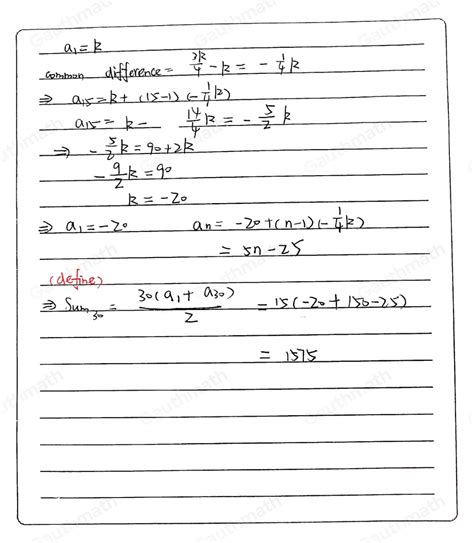 a₁ = k
common difference = 3k/4 - k = - 1/4 k
⇒ a₁₅ = k + (15-1) (-1/4 k)
a₁₅ = k - 14/4 k = - 5/2 k
⇒ - 5/2 k = 90 + 2k
- 9/2 k = 90
k = -20
⇒ a₁ = -20 an = -20 + (n-1) (-1/4 k)
= 5n - 25
(define)
⇒ Sum₃₀ = 30(a₁ + a₃₀) / 2 = 15(-20 + 150 - 25)
= 1575